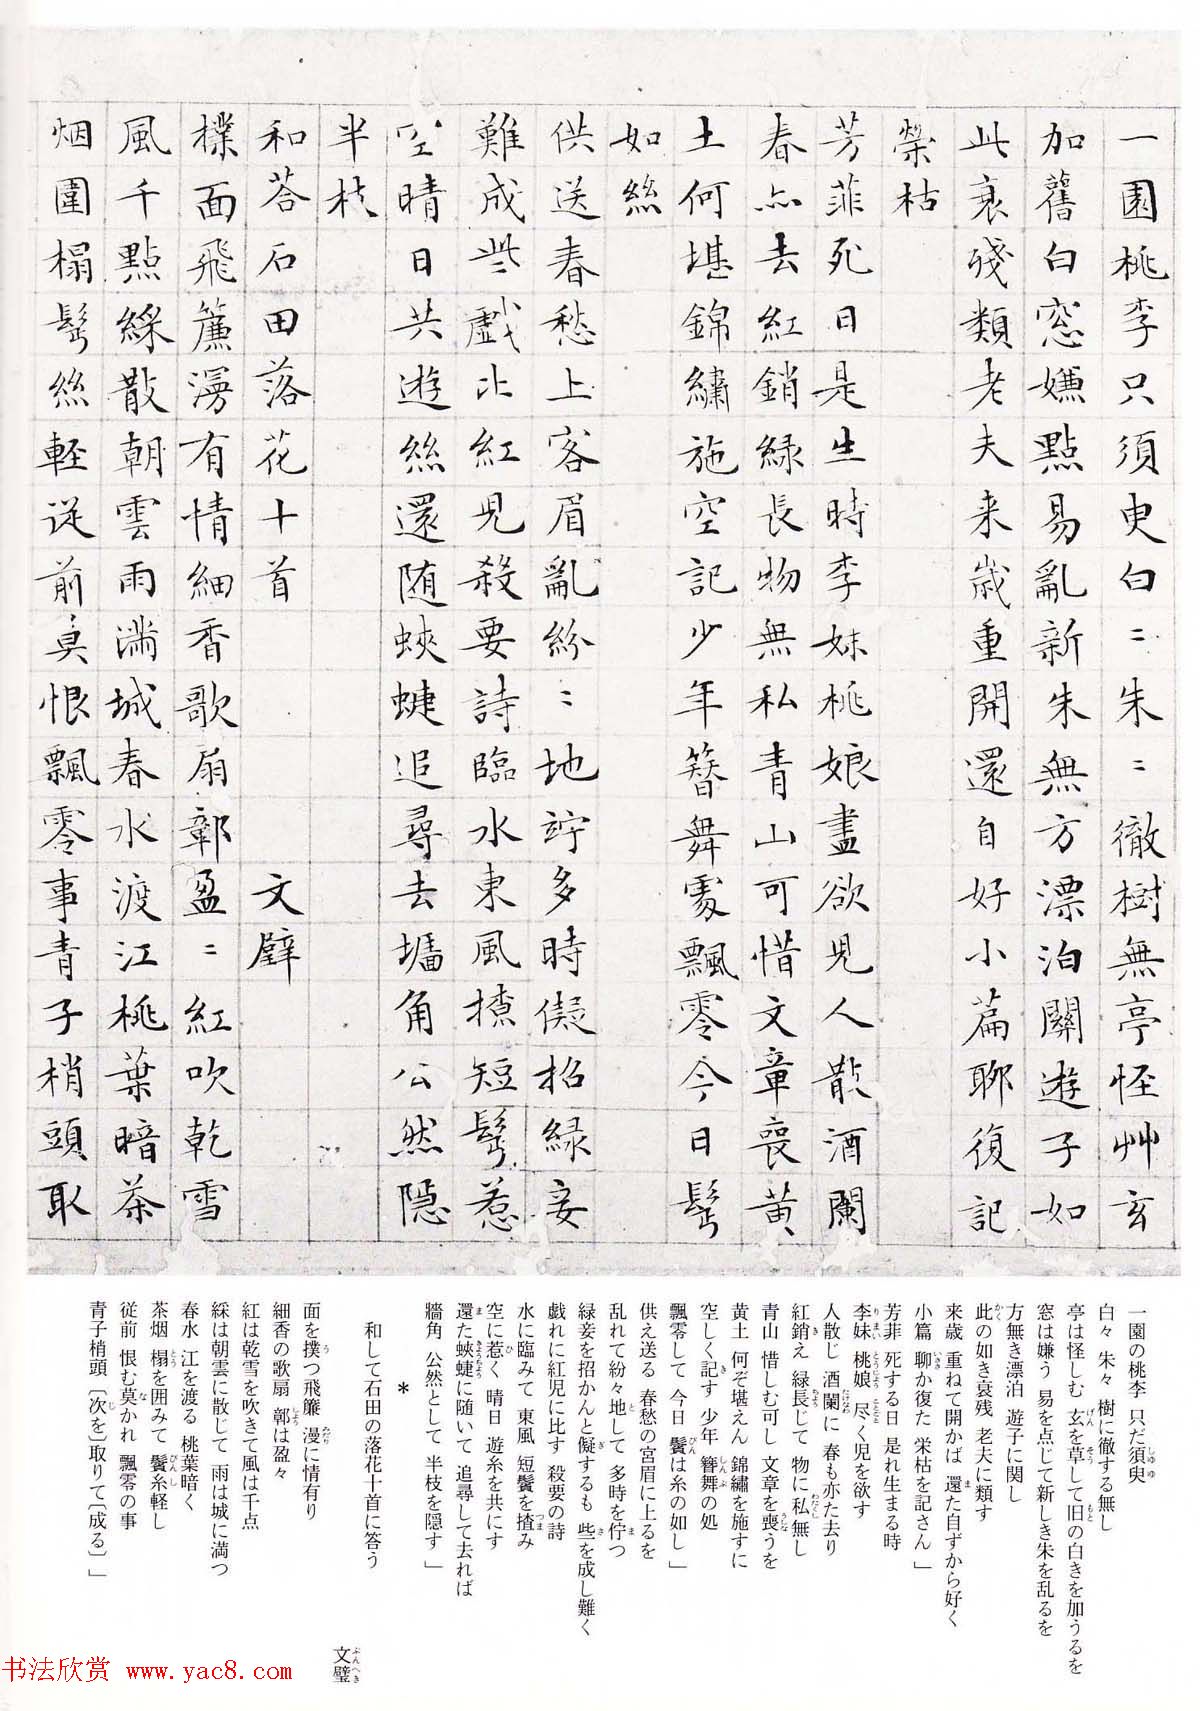 一園桃李只須臾白〻朱〻徹樹無亭怪艸玄
加舊白窓嫌點易亂新朱無方漂泊關遊子如
此衰殘類老夫来歳重開還自好小篇聊復記
榮枯
芳菲死日是生時李妹桃娘盡欲兒人散酒闌
春亦去紅銷緑長物無私青山可惜文章喪黄
土何堪錦繡施空記少年簪舞處飄零今日鬢
如絲
供送春愁上客眉亂紛〻地竚多時儗招緑妾
難成些戲比紅児殺要詩臨水東風撩短鬢惹
空晴日共遊絲還随蛺蜨追尋去墻角公然隠
半枝
和荅石田落花十首 文璧
撲面飛簾漫有情細香歌扇鄣盈〻紅吹乾雪
風千點綵散朝雲雨満城春水渡江桃葉暗茶
烟圍榻鬢絲軽従前莫恨飄零事青子梢頭取
一園の桃李 只だ須臾
白々 朱々 樹に徹する無し
亭は怪しむ 玄を草して旧の白きを加うるを
窓は嫌う 易を点じて新しき朱を乱るを
方無き漂泊 遊子に関し
此の如き衰残 老夫に類す
来歳 重ねて開かば 還た自ずから好く
小篇 聊か復た 栄枯を記さん」
芳菲 死する日 是れ生まる時
李妹 桃娘 尽く児を欲す
人散じ 酒闌に 春も亦た去り
紅銷え 緑長じて 物に私無し
青山 惜しむ可し 文章を喪うを
黄土 何ぞ堪えん 錦繡を施すに
空しく記す 少年 簪舞の処
飄零して 今日 鬢は糸の如し」
供え送る 春愁の宮眉に上るを
乱れて紛々地して 多時を佇つ
緑妾を招かんと儗するも 些を成し難く
戯れに紅児に比す 殺要の詩
水に臨みて 東風 短鬢を撦み
空に惹く 晴日 遊糸を共にす
還た蛺蜨に随いて 追尋して去れば
牆角 公然として 半枝を隠す」
*
和して石田の落花十首に答う
文璧
面を撲つ飛簾 漫に情有り
細香の歌扇 鄣は盈々
紅は乾雪を吹きて風は千点
綵は朝雲に散じて 雨は城に満つ
春水 江を渡る 桃葉暗く
茶烟 榻を囲みて 鬢糸軽し
従前 恨む莫かれ 飄零の事
青子梢頭〔次を〕取りて〔成る〕」
书法欣赏 www.yac8.com